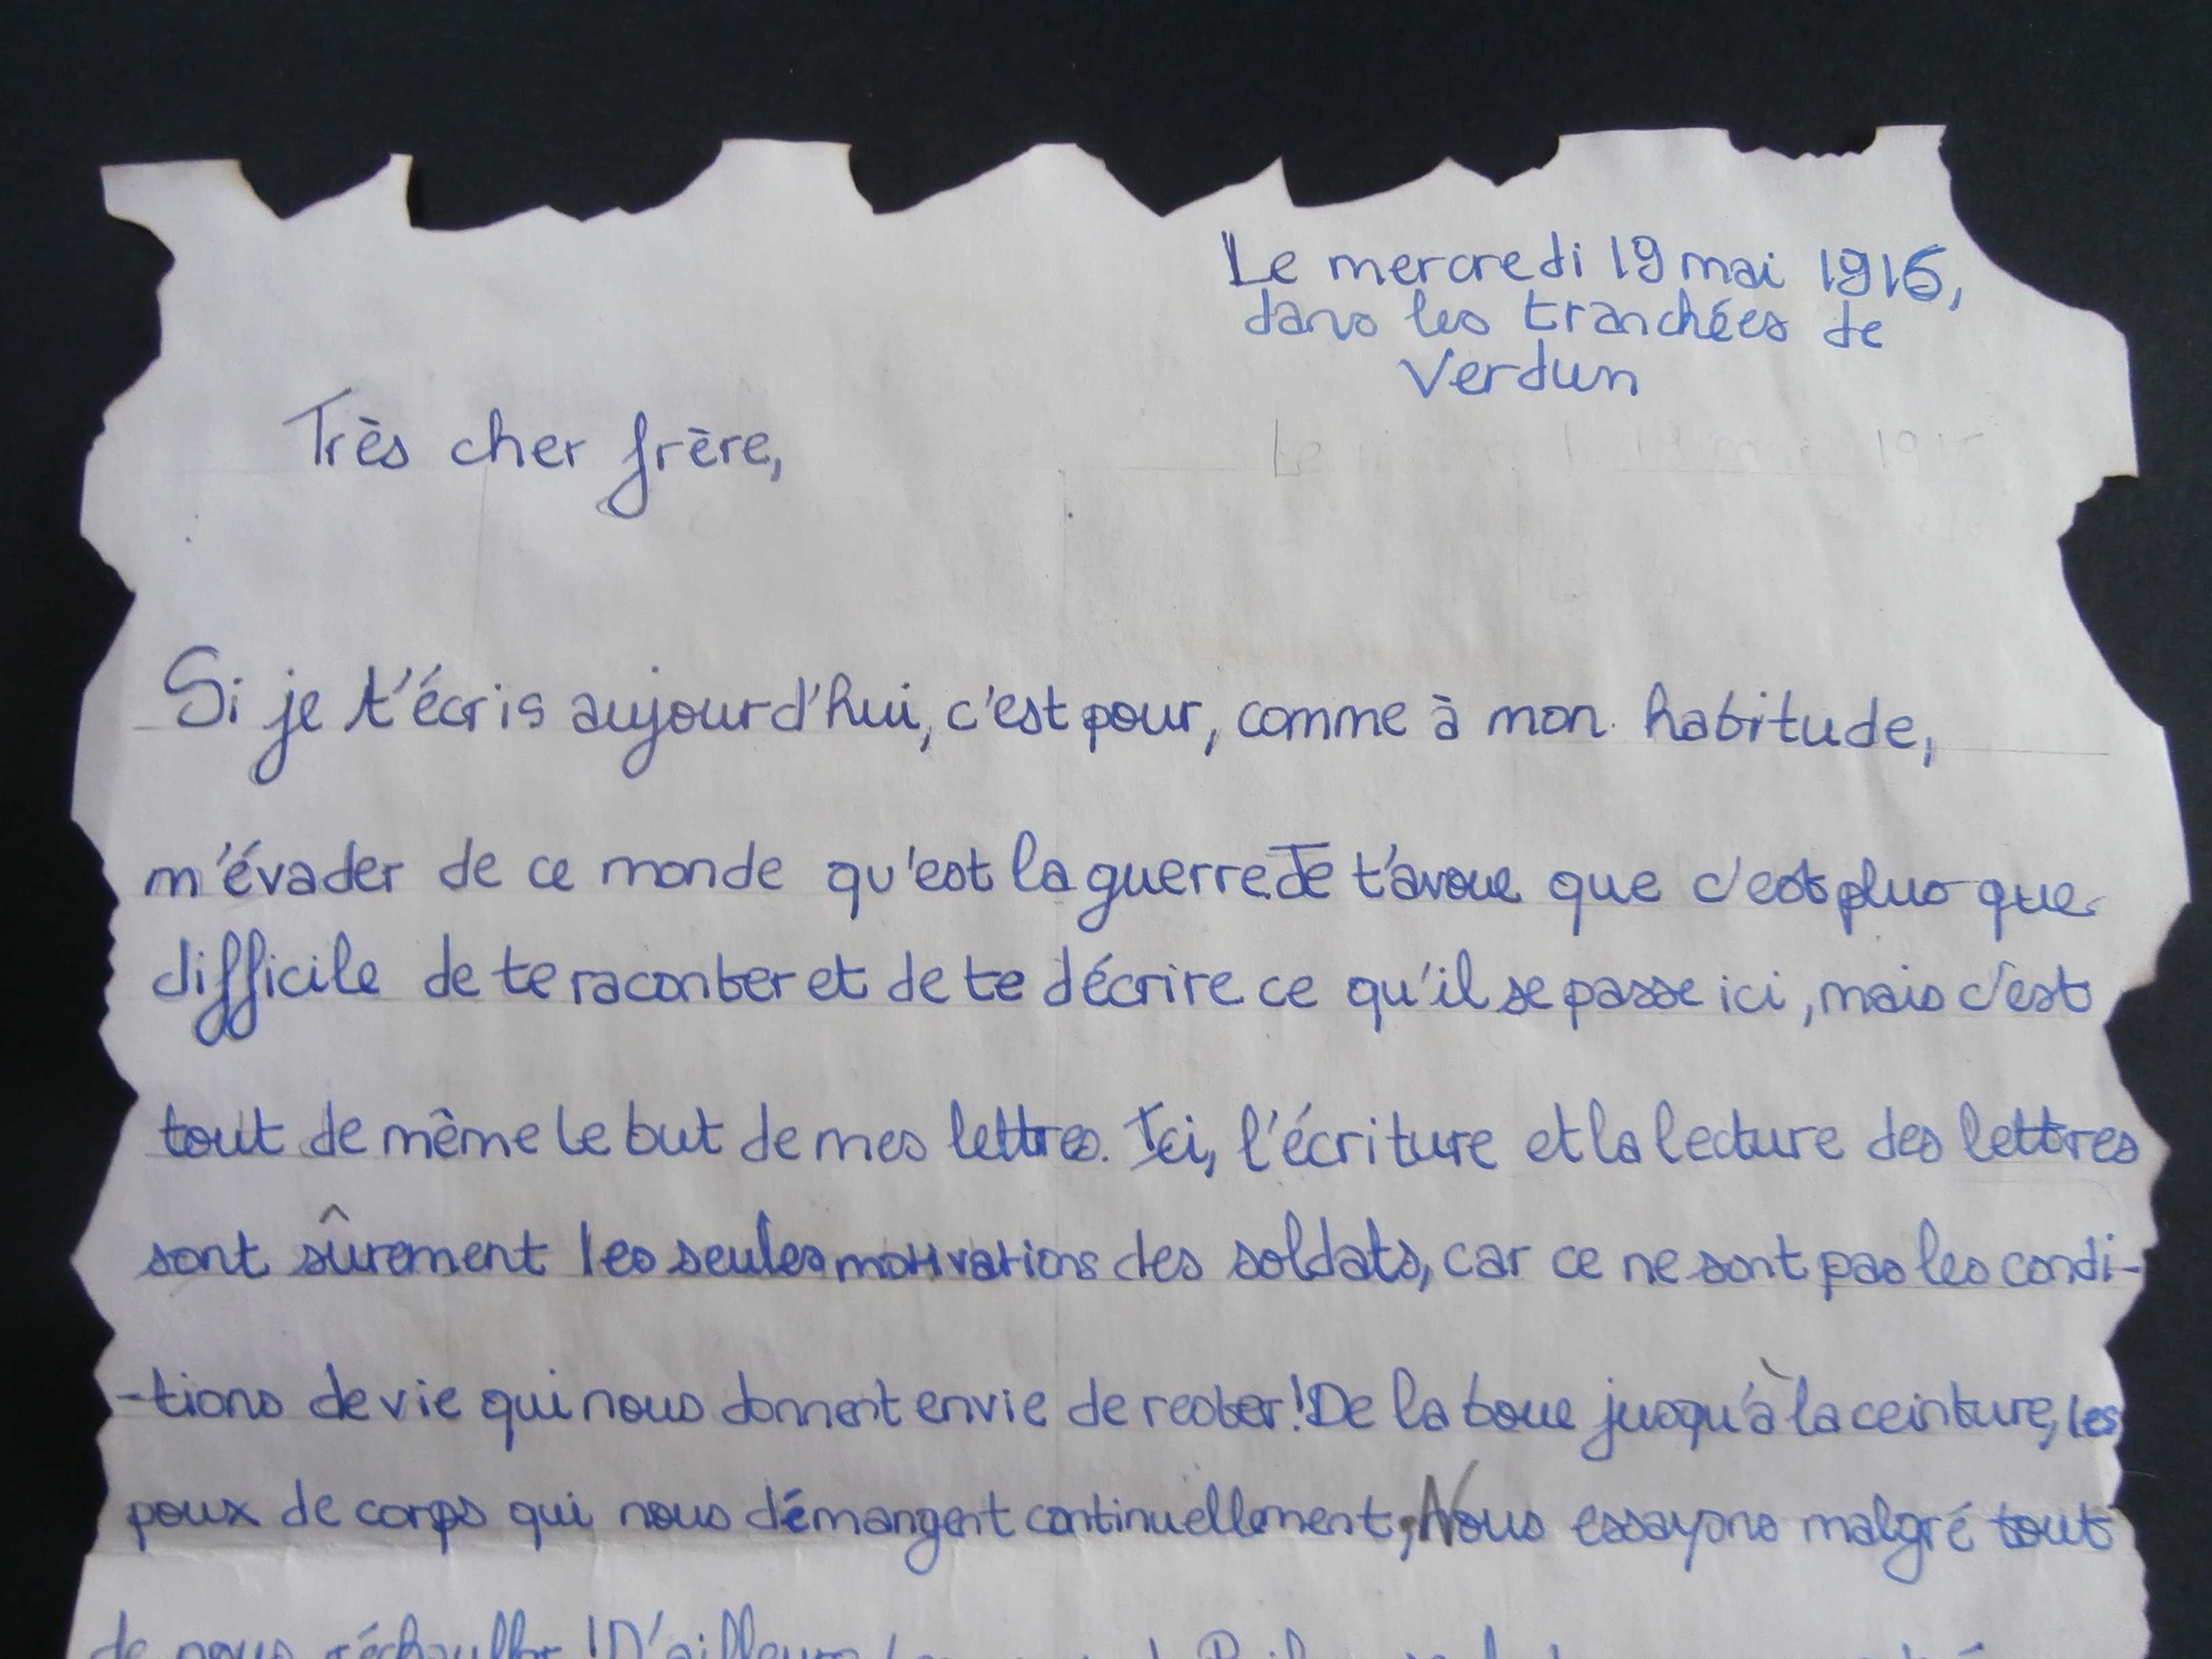 Le mercredi 19 mai 1916,
dans les tranchées de
Verdun
Très cher frère,
Si je t'écris aujourd'hui, c'est pour, comme à mon habitude,
m'évader de ce monde qu'est la guerre. Je t'avoue que c'est plus que
difficile de te raconter et de te décrire ce qu'il se passe ici, mais c'est
tout de même le but de mes lettres. Ici, l'écriture et la lecture des lettres
sont sûrement les seules motivations des soldats, car ce ne sont pas les condi-
-tions de vie qui nous donnent envie de rester! De la boue jusqu'à la ceinture, les
poux de corps qui nous démangent continuellement, Nous essayons malgré tout
de nous réchauffer! D'ailleurs